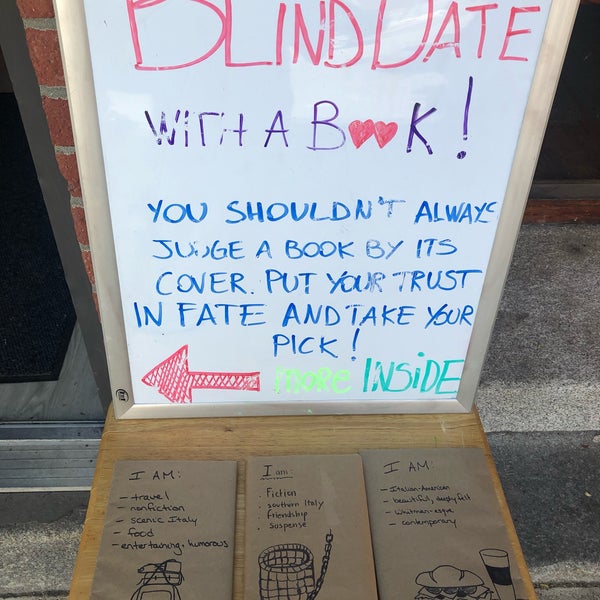 BLIND DATE
WITH A BOOK!
YOU SHOULDN'T ALWAYS
JUDGE A BOOK BY ITS
COVER. PUT YOUR TRUST
IN FATE AND TAKE YOUR
PICK!
MORE INSIDE
I AM:
- travel
- nonfiction
- scenic Italy
- food
- entertaining, humorous
I am:
· Fiction
· southern Italy
· friendship
· Suspense
I AM:
- Italian-American
- beautiful, deeply felt
- Whitman-esque
- contemporary